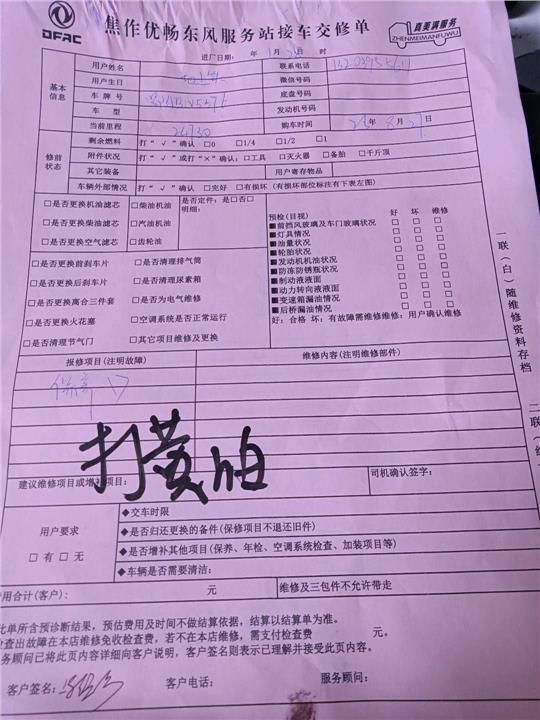 DFAC
焦作优畅东风服务站接车交修单
真美满服务
ZHENMEIMANFUWU
进厂日期: 年 1月24日 时
基本信息
用户姓名 联系电话
用户生日 微信号码
车牌号 底盘号码
车型 发动机号码
当前里程 24730 购车时间 年8月27日
修前状态
剩余燃料 打“√”确认 □0 □1/4 □1/2 □1
附件状况 打“√”或打“×”确认:□工具 □灭火器 □备胎 □千斤顶
其它装备 用户寄存物品
车辆外部情况 打“√”确认 □完好 □有损坏(有损坏部位标注有下表左图)
□是否更换机油滤芯 □柴油机油 是否定件:是□否□
明细:
□是否更换柴油滤芯 □汽油机油
□是否更换空气滤芯 □齿轮油
□是否更换前刹车片 □是否清理排气筒
□是否更换后刹车片 □是否清理尿素箱
□是否更换离合三件套 □是否为电气维修
□是否更换火花塞 □空调系统是否正常运行
□是否清理节气门 □其它项目维修及更换
预检(目视) 好 坏 维修
■前挡风玻璃及车门玻璃状况 □ □ □
■灯具情况 □ □ □
■油量状况 □ □ □
■轮胎状况 □ □ □
■发动机机油状况 □ □ □
■防冻防锈瓶状况 □ □ □
■制动液液面 □ □ □
■动力转向液液面 □ □ □
■变速箱漏油情况 □ □ □
■后桥漏油情况 □ □ □
好:合格 坏:有故障需维修维修:用户确认维修
报修项目(注明故障) 维修内容(注明维修部件)
保养
打黄油
建议维修项目或增补项目: 司机确认签字:
用户要求
□有 □无
◆交车时限
◆是否归还更换的备件(保修项目不退还旧件)
◆是否增补其他项目(保养、年检、空调系统检查、加装项目等)
◆车辆是否需要清洁:
费用合计(客户): 元 维修及三包件不允许带走
此单所含预诊断结果,预估费用及时间不做结算依据,结算以结算单为准。
检查出故障在本店维修免收检查费,若不在本店维修,需支付检查费 元。
服务顾问已将此页内容详细向客户说明,客户签名则表示已理解并接受此内容。
客户签名: 客户电话: 服务顾问:
一联(白)随维修资料存档
二联